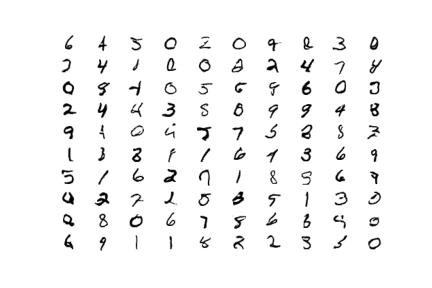 6 4 5 0 2 0 9 8 3 0
2 4 1 0 0 2 2 4 7 4
0 8 4 0 5 6 9 6 0 3
2 4 4 3 8 8 9 9 4 8
9 1 0 4 5 7 5 8 8 2
1 3 8 9 1 6 1 3 6 9
5 1 6 2 7 1 8 5 6 9
0 2 2 2 5 8 5 1 3 0
2 8 0 6 7 8 6 3 9 0
6 9 1 1 8 2 2 3 5 0